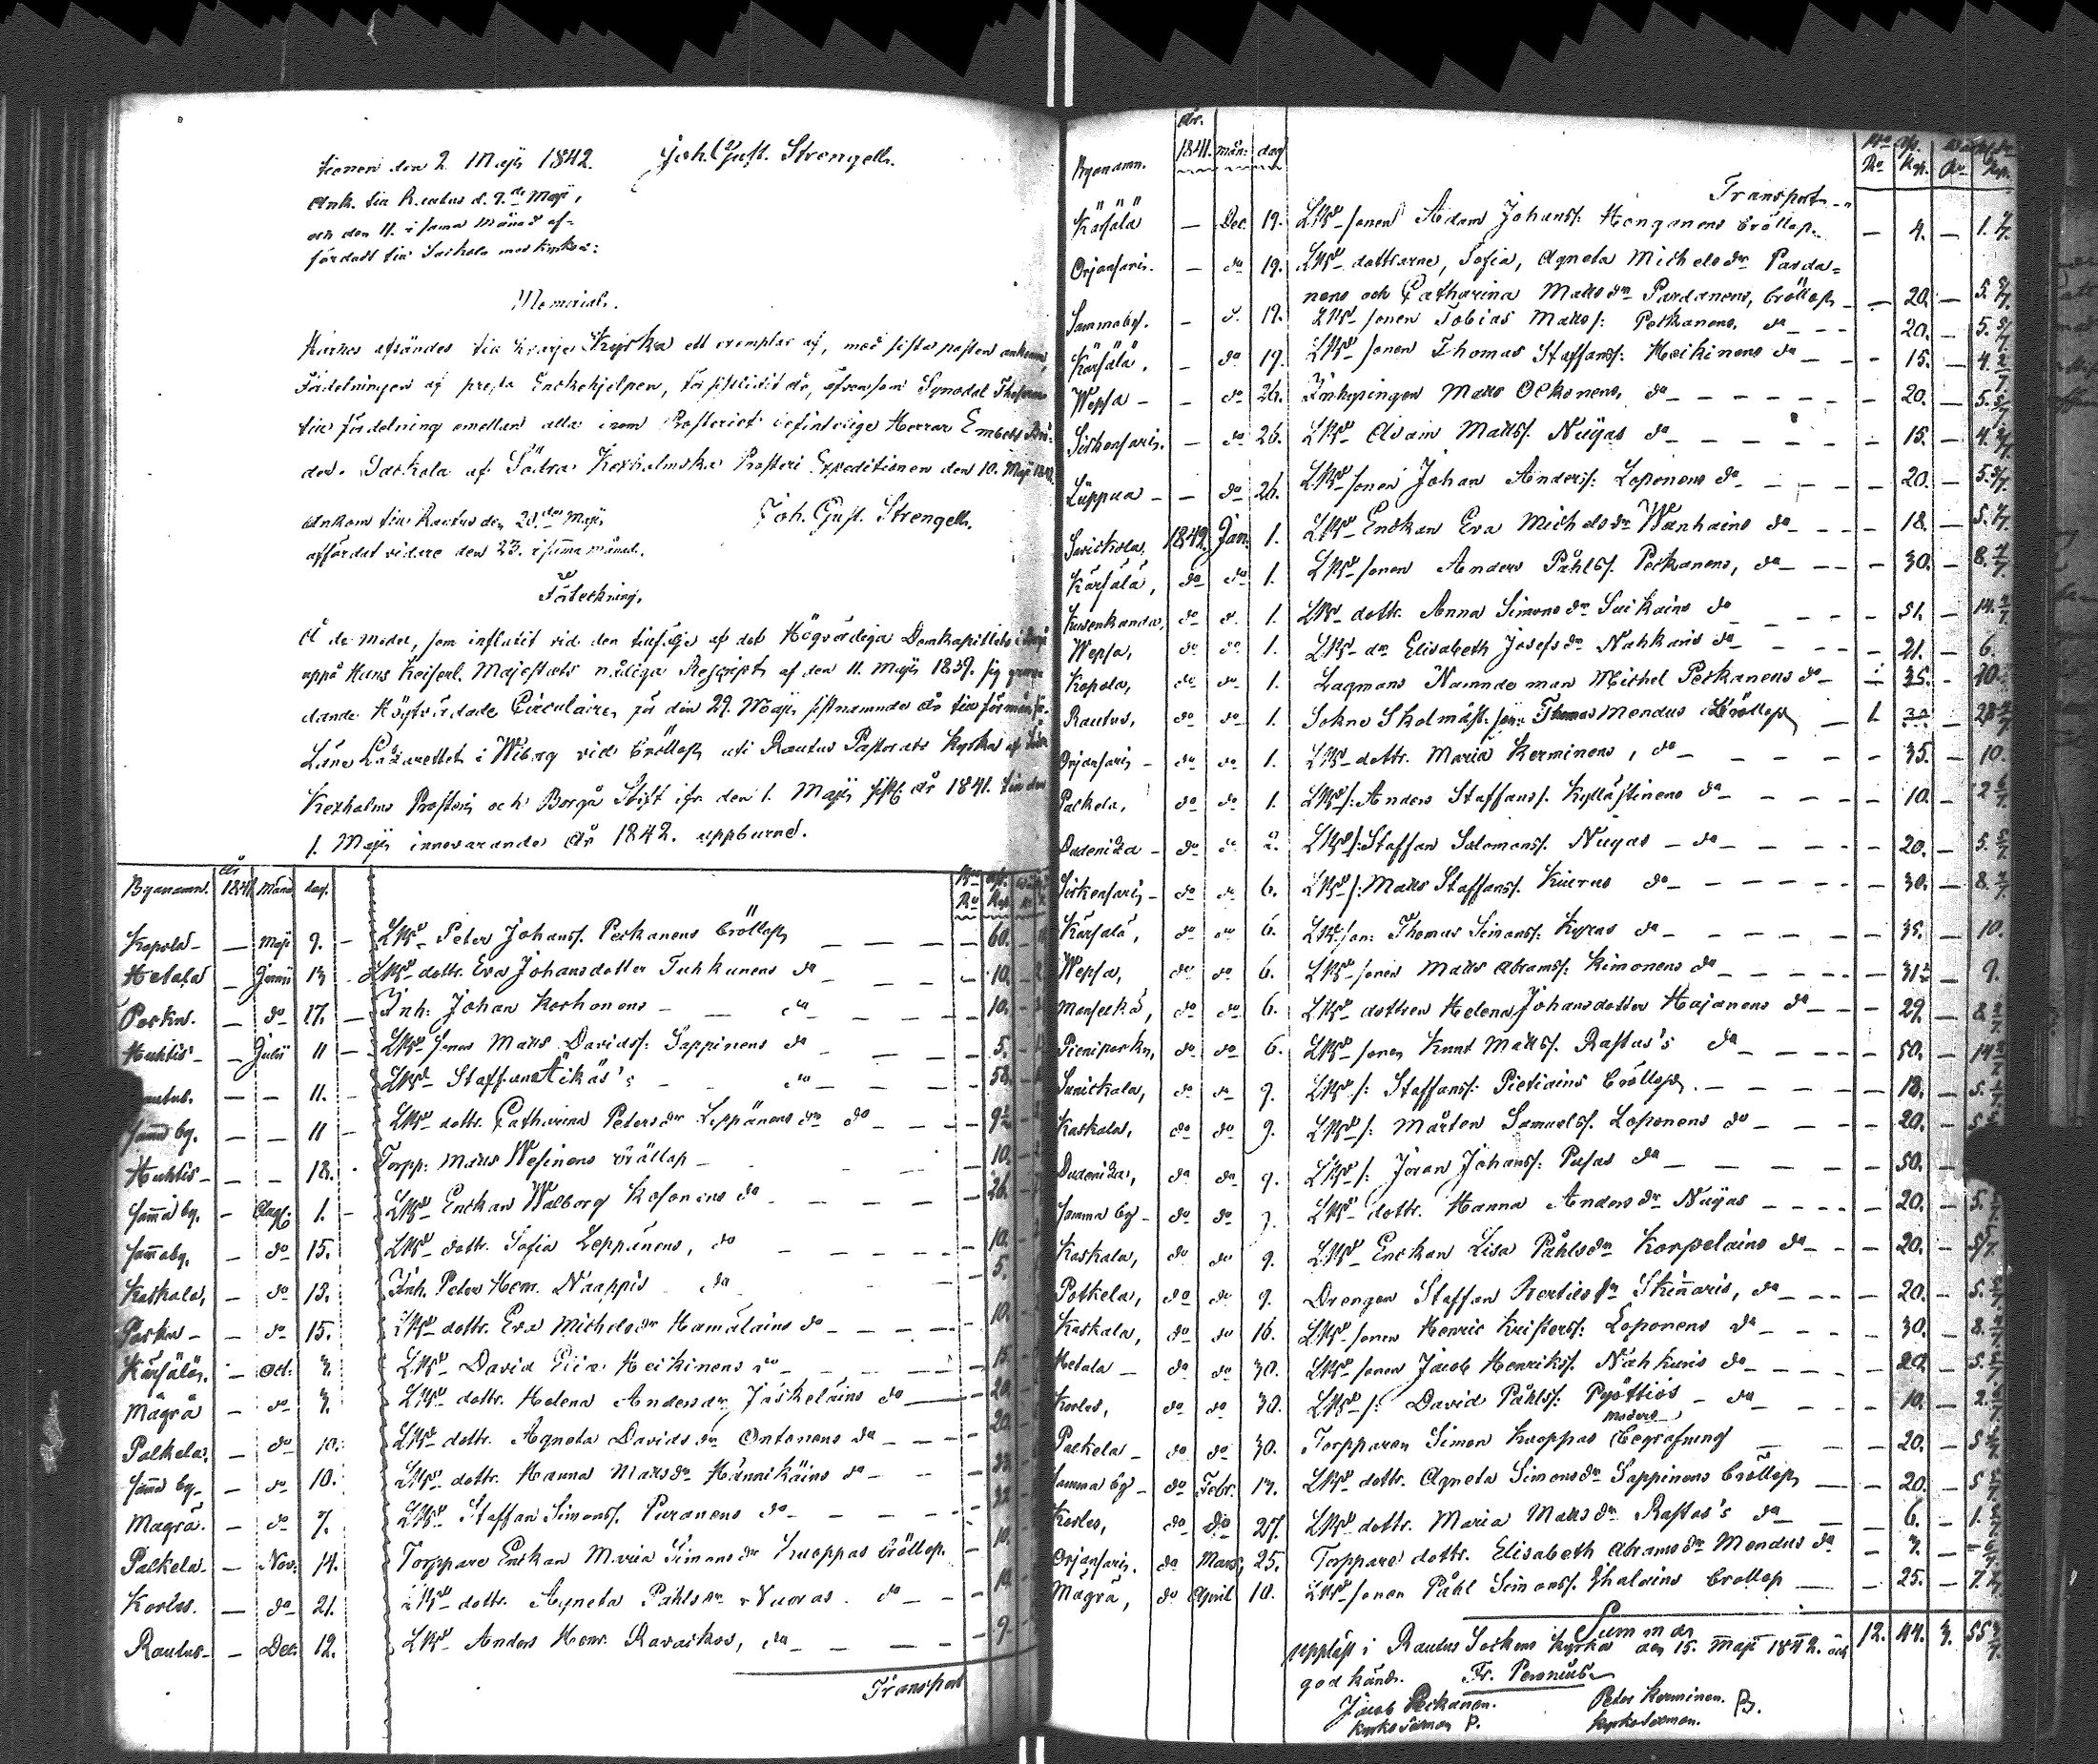 tionen den 2 Maji 1842. Joh. Gust. Strengell.
Ank. till Rautus d. 9.de Maji,
och den 11. i samma månad af-
färdadt till Sackola moskyrka:
Memorial.
Härhos afsändes till hvarje Kyrka ett exemplar af, med sista posten ankomn,
Fördelningen af presta Enkehjelpen, för sistlidit år, äfvensom Synodal Theserne
till fördelning emellan alla inom Prosteriet befintelige Herrar Embets Brö-
der. Sackola af Södra Kexholmska Prosteri Expeditionen den 10. Maji 1842.
Ankom till Rautus den 20.de Maji Joh. Gust. Strengell.
affärdat vidare den 23. i samma månad.
Förteckning,
Å de medel, som influtit vid den till följe af det Högvördiga Domkapitlets i Borgå
uppå Hans Keiserl. Majestæts nådiga Rescript af den 11. Maji 1837. sig grun-
dande Högtvördade Circulaire, för den 29. Maji sistnämnde år till förmån för
Läne Lazarettet i Wiborg vid bröllop uti Rautus Pastorats Kyrka af Södra
Kexholms Prosteri och Borgå Stift ifr. den 1. Maji sistl. år 1841. till den
1. Maji innevarande år 1842. uppburne.
Byanamn. år 1841 Månd dag.
Kopola — Maji 9. — LBd Peter Johanss. Peckanens bröllop 60.
Hetala — Junii 13 — LBd dottr. Eva Johansdotter Tuhkunens do 10.
Porku. — do 17. — Inh: Johan Korhonens do 10.
Huhtis — Julii 11 — LBd sonen Matts Davidss: Sappinens do 5.
Rautus. — — 11. LBd Staffan Äikäs's do 58.
Samma by. — — 11 — LBd dottr. Catharina Peters dr Leppänens do
Huhtis — — 18. Torpp: Matts Wesinens bröllop 10.
Samma by. — Aug. 1. — LBd Enckan Walborg Kosonens do 26.
Sammaby. — do 15. LBd dottr. Sofia Leppänens, do 10.
Kaskala, — do 13. Inh. Peter Henr. Naappis do 5.
Porku — do 15. LBd dottr. Eva Michels dr Hämäläins do 10.
Kärsälä. — Oct: 3. LBd David Heikinens do
Mågrä — do 3. LBd dottr. Helena Anders dr Jäskeläins do 20.
Palkela. — do 10. LBd dottr. Agneta Davids dr Ontonens do 20.
Samma by — do 10. LBd dottr. Hanna Matts dr Hännikäins do
Mågrä. — do 7. LBd Staffan Simonss. Puranens do
Palkela — Nov: 14. Torppare Enckan Maria Simons dr Kuoppas bröllop 10.
Korles. — do 21. LBd dottr. Agneta Påhls dr Vuoras do
Rautus — Dec: 12. LBd Anders Henr. Ravaskos, do 9.
Transport
Byanamn. år. 1841. mån: dag
Transport
Kärsälä — Dec 19. LBd sonen Adam Johanss: Hongonens bröllop 4. 1. 1/7.
Orjansaris. — do 19. LBd döttrarne, Sofia, Agneta Michels dr Parda-
nens och Catharina Matts dr Pardanens, bröllop 20. 5. 5/7.
Sammaby. — d. 19. LBd sonen Tobias Matts s: Peckanens, do 20. 5. 5/7
Kärsälä. — do 19. LBd sonen Thomas Staffanss: Heikinens do 15. 4. 2/7
Wepsa — do 26. Inhysingen Matts Ockonens, do 20. 5. 5/7
Sirkensaris. — do 26. LBd Adam Mattss. Nuijas do 15. 4. 2/7.
Lippua — do 26. LBd sonen Johan Anderss: Loponens do 20. 5. 5/7.
Savickola. 1842. Jan: 1. LBd Enckan Eva Michels dr Wanhains do 18. 5. 1/7.
Kärsälä, do do 1. LBd sonen Anders Påhlss. Peckanens, do 30. 8. 4/7.
Kusenkanda, do d. 1. LBd dottr. Anna Simons dr Suikains do 51. 14. 4/7
Wepsa, do do 1. LBd dr Elisabeth Josefs dr Nahkuris do 21. 6.
Kopola, do do 1. Lagmans Nämnde man Michel Peckanens do 35. 10.
Rautus, do do 1. Sokne Skolmäst. sön: Thomas Mondus bröllop 1.
Orjansaris — do do 1. LBd dottr. Maria Kerminens, do 35. 10.
Palkela, do do 1. LBd s: Anders Staffanss. Kyllästinens do 10. 2 6/7.
Dudenika — do do 2. LBd s: Staffan Salomonss. Nuijas do 20. 5. 5/7.
Sirkensaris — do do 6. LBd s: Matts Staffanss. Kuivas do 30. 8. 4/7.
Kärsälä, do do 6. LBd son: Thomas Simonss: Kyras do 35. 10.
Wepsa, do do 6. LBd sonen Matts Abramss: Kimonens do 31 1/2 9.
Manseckä, do do 6. LBd dottren Helena Johansdotter Hajanens do 29. 8 2/7
Pieniporku, do do 6. LBd sonen Knut Mattss. Rastas's do 50. 14 2/7
Savickala, do do 9. LBd s: Staffanss: Pietiains bröllop. 18. 5. 1/7
Kaskala, do do 9. LBd s: Mårten Samuelss. Loponens do 20.
Dudenika, do do 9. LBd s: Jöran Johanss: Pusas do 50.
Samma by — do do 9. LBd dottr. Hanna Anders dr Nuijas 20. 5.
Kaskala, do do 9. LBd Enckan Lisa Påhls dr Korpelains do 20. 5/7.
Potkela, do do 9. Drengen Staffan Bertils s Skinnaris, do 20. 5.
Kaskala, do do 16. LBd sonen Henric Kristerss: Loponens do 30. 8.
Hetala — do do 30. LBd sonen Jacob Henrikss. Nahkuris do 20. 5.
Korles, do do 30. LBd s: David Påhlss: Pyöttiös — do 10. 2.
Palkela — do do 30. Torpparen Simon Kuoppas moders begrafning 20. 5
Samma by — do Febr. 13. LBd dottr. Agneta Simons dr Sappinens bröllop 20. 5
Korles, do do 27. LBd dottr. Maria Matts dr Rastas's do 6. 1.
Orjansaris. do Mars, 25. Torppare dottr. Elisabeth Abrams dr Mondus do 3.
Mågrä, do April 10. LBd sonen Påhl Simonss. Ihalains bröllop 25. 7.
Summa 12. 44. 3. 55
Uppläst i Rautus Sockens kyrka den 15. Maji 1842. och
godkänd. Fr. Peronius.
Jacob Peckanen. Peter Kerminen. B.
Kyrkovärman P. Kyrkovärman.